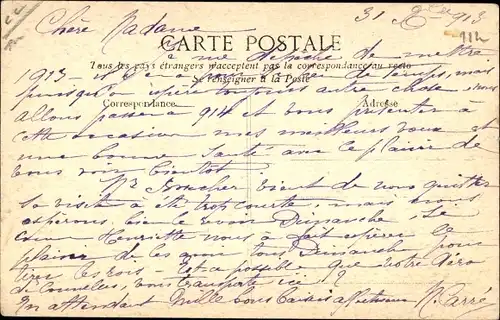 31 Xbre 1913
Chère Madame
CARTE POSTALE
je me dépêche de mettre
Tous les pays étrangers n'acceptent pas la correspondance au recto
Se renseigner à la Poste
913 de temps, mais
toujours autre chose, nous
Correspondance
Adresse
allons passer à 914 et vous présenter à
cette occasion mes meilleurs vœux et
une bonne santé avec le plaisir de
vous voir bientôt.
Mr vient de nous quitter
Sa visite a été trop courte, mais nous
espérons bien le revoir Dimanche. Le
Henriette nous a fait espérer le
plaisir de les avoir tous Dimanche pour
tirer les rois - Est-ce possible que votre
vous transporte ici !?
En attendant Mille bons baisers affectueux